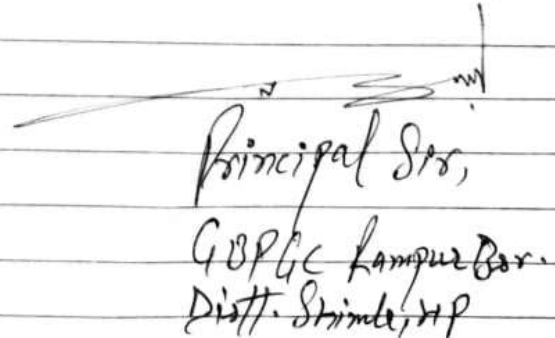 Principal Sir,
GBPGC Rampur Bsr.
Distt. Shimla, HP